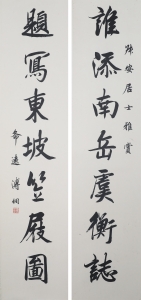 誰添南岳虞衡誌
疎安居士雅賞
題寫東坡笠屐圖
希遠 溥侗